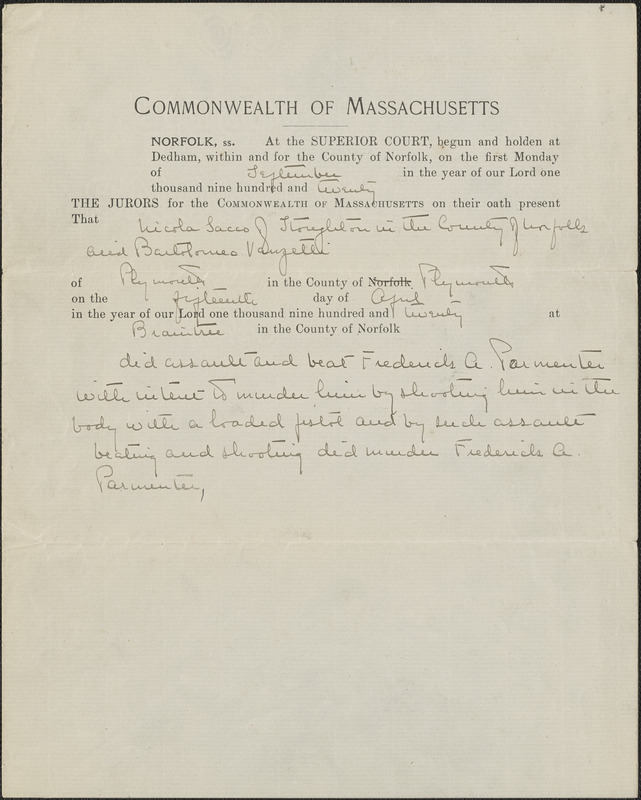 COMMONWEALTH OF MASSACHUSETTS
NORFOLK, ss. At the SUPERIOR COURT, begun and holden at
Dedham, within and for the County of Norfolk, on the first Monday
of September in the year of our Lord one
thousand nine hundred and twenty
THE JURORS for the COMMONWEALTH OF MASSACHUSETTS on their oath present
That Nicola Sacco of Stoughton in the County of Norfolk
and Bartolomeo Vanzetti
of Plymouth in the County of Norfolk Plymouth
on the fifteenth day of April
in the year of our Lord one thousand nine hundred and twenty at
Braintree in the County of Norfolk
did assault and beat Frederick A. Parmenter
with intent to murder him by shooting him in the
body with a loaded pistol and by such assault
beating and shooting did murder Frederick A.
Parmenter,